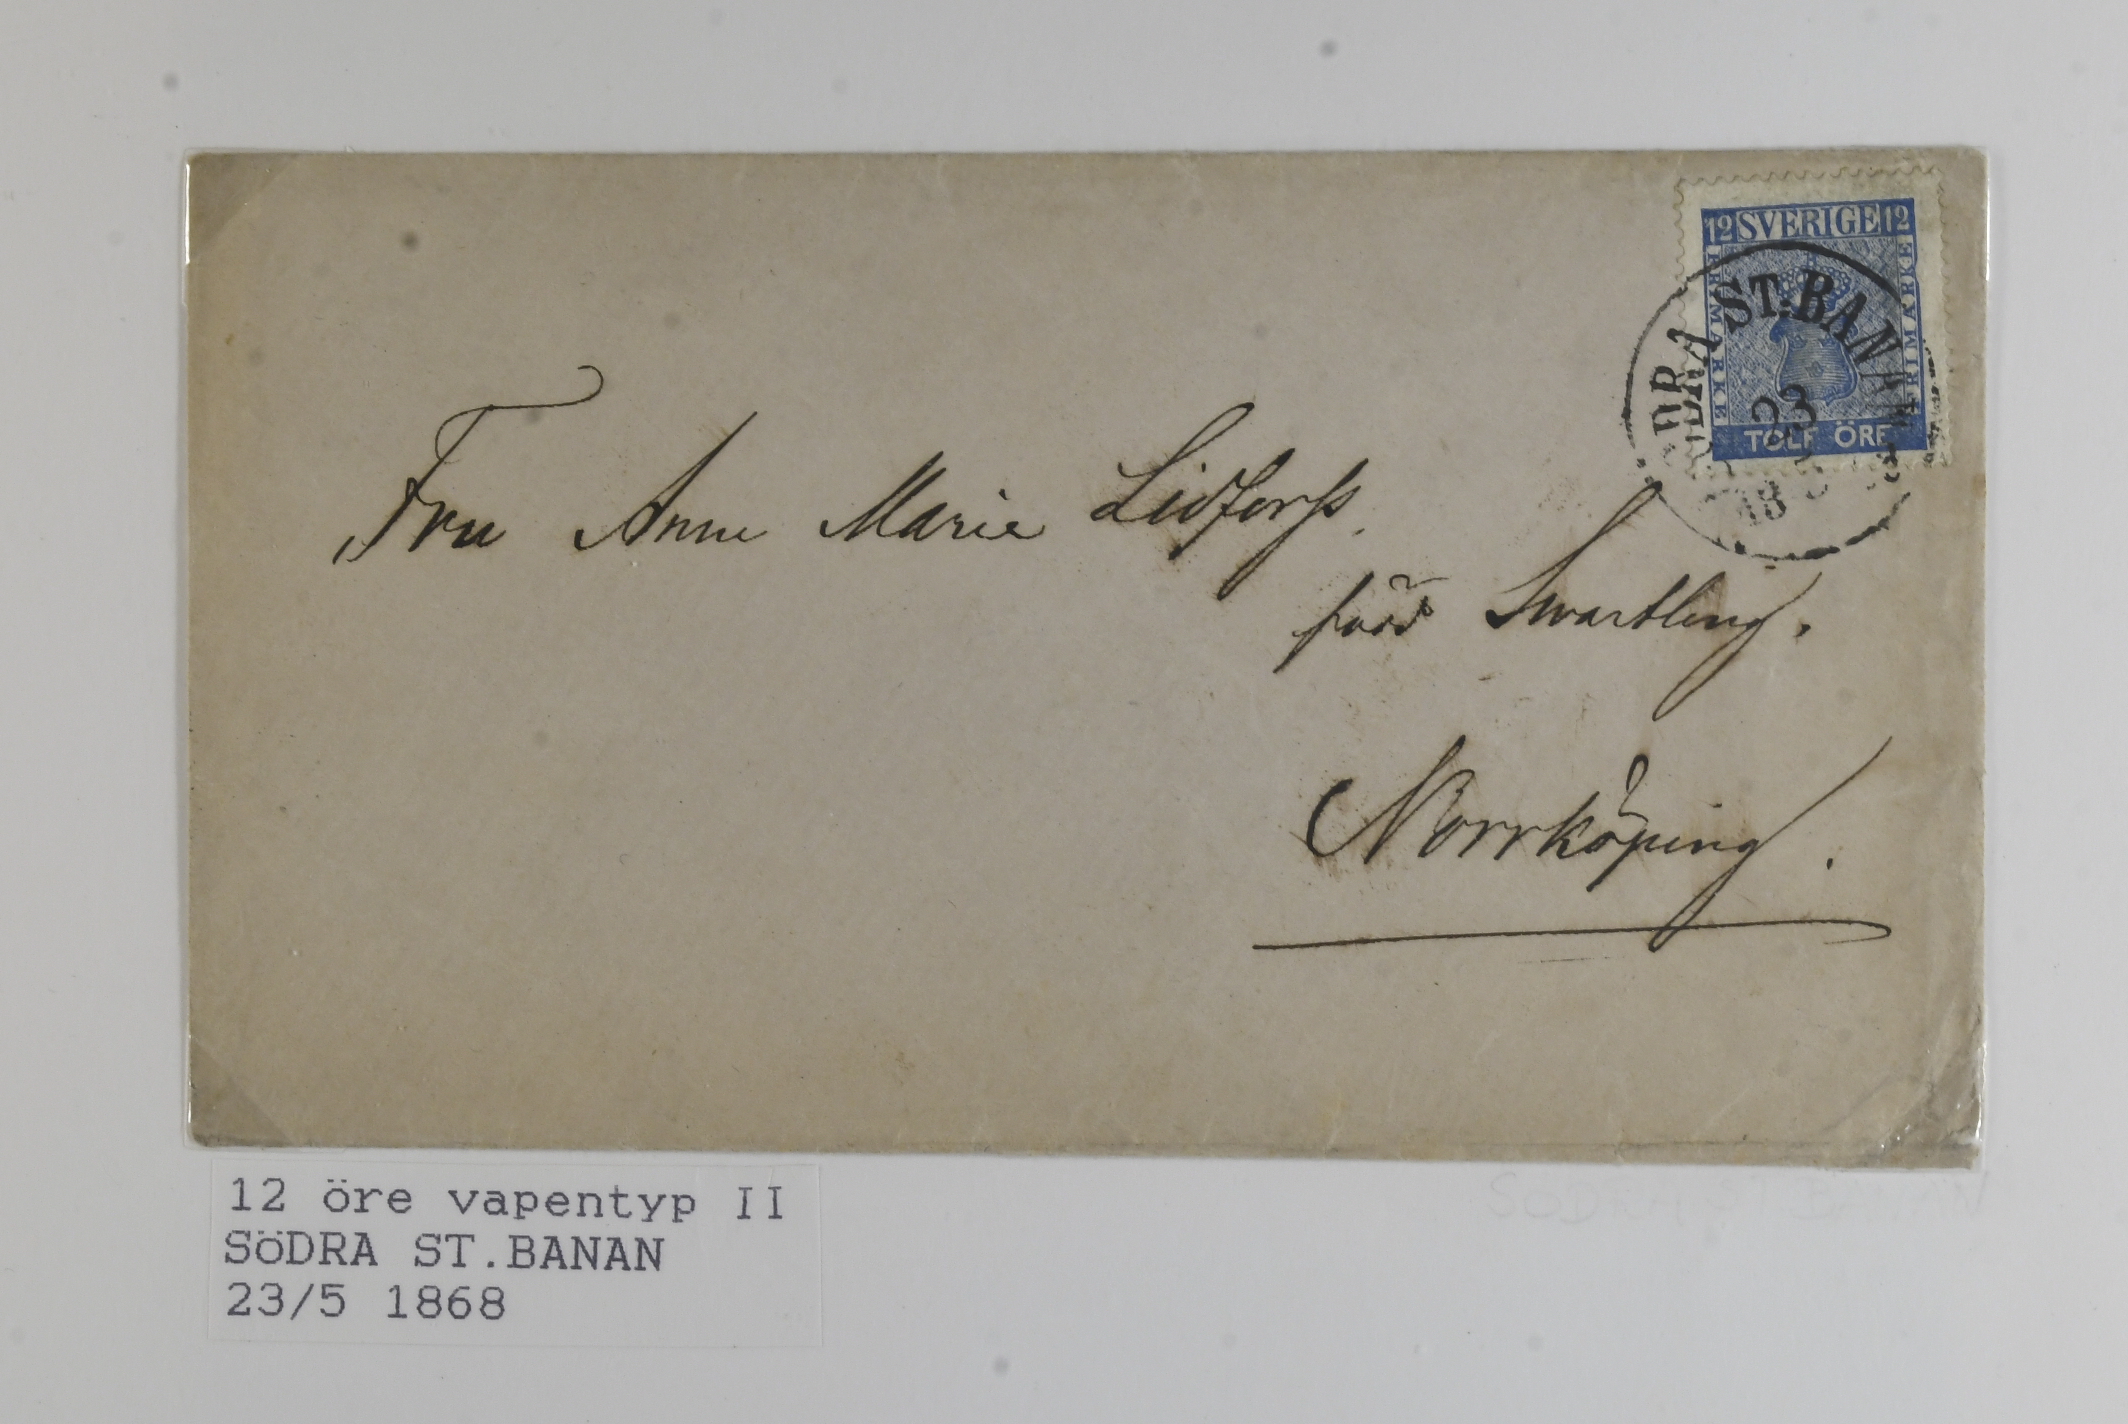 12 SVERIGE 12
FRIMÄRKE
FRIMÄRKE
TOLF ÖRE
SÖDRA ST.BANAN
23
5
18
Fru Anne Marie Lidforss.
född Swartling.
Norrköping.
12 öre vapentyp II
SöDRA ST.BANAN
23/5 1868
SÖDRA ST BANAN